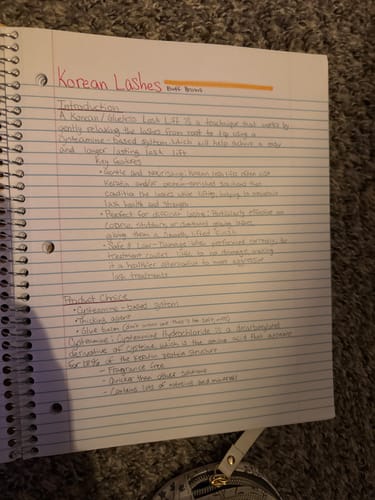 Korean Lashes Buff Brows
Introduction
A Korean/Glueless Lash Lift is a technique that works by
gently relaxing the lashes from root to tip using a
cysteamine-based system which will help achieve a safer
and longer lasting lash lift
Key features
• Gentle and Nourishing: Korean lash lifts often use
Keratin and/or protein-enriched solutions that
condition the lashes while lifting, helping to
lash health and strength
• Perfect for difficult lashes: Particularly effective on
coarse, stubborn or downward growing lashes,
giving them a smooth lifted finish
• Safe & Low-Damage: when performed correctly, the
treatment causes little to no damage, making
it a healthier alternative to more aggressive
lash treatments
Product Choice
• Cysteamine-based system
• Thicking agent
• Glue balm
Cysteamine: Cysteamine Hydrochloride is a decarboxylated
derivative of cysteine which is the amino acid that accounts
for of the keratin protein structure
- Fragrance free
- Quicker than other solutions
- Contains lots of and minerals